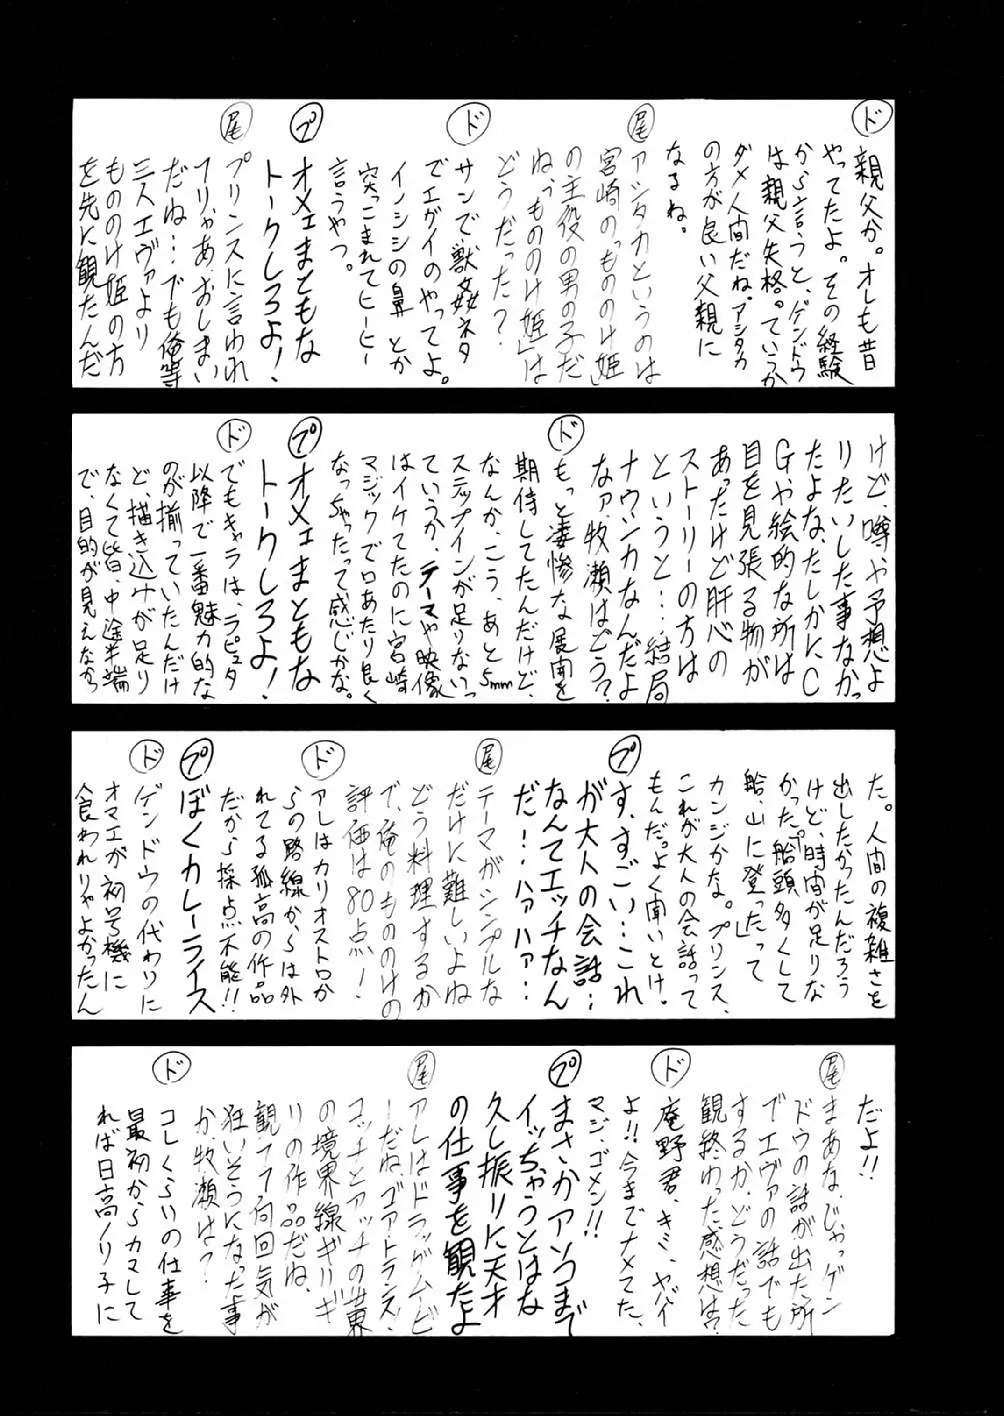 ド
親父か。オレも昔
やってたよ。その経験
から言うと、ゲンドウ
は親父失格。ていうか
ダメ人間だね。アシタカ
の方が良い父親に
なるね。
尾
アシタカというのは
宮崎の「もののけ姫」
の主役の男の子だ
ね。「もののけ姫」は
どうだった?
ド
サンで、獣姦ネタ
でエグイのやってよ。
イノシシの鼻とか
突っこまれてヒーヒー
言うやつ。
プ
オメェまともな
トークしろよ!
尾
プリンスに言われ
フリゃあ、おしまい
だね…でも俺等
三人エヴァより
もののけ姫の方
を先に観たんだ
けど、噂や予想よ
りたいした事なかっ
たよな。たしかにC
Gや絵的な所は
目を見張る物が
あったけど肝心の
ストーリーの方は
というと…結局
ナウシカなんだよ
なァ、牧瀬はどう?
ド
もっと凄惨な展開を
期待してたんだけど、
なんか、こう、あと5mm
ステップインが足りないっ
ていうか、テーマや映像
はイケてたのに宮崎
マジックで口あたり良く
なっちゃったって感じかな。
プ
オメェまともな
トークしろよ!
ド
でもキャラは、ラピュタ
以降で一番魅力的な
のが揃っていたんだけ
ど、描き込けが足り
なくて皆、中途半端
で、目的が見えなかっ
た。人間の複雑さを
出したかったんだろう
けど、時間が足りな
かった。「船頭多くして
船、山に登った」って
カンジかな。プリンス、
これが大人の会話って
もんだっよく聞いとけ。
プ
す、すごい…これ
が大人の会話…
なんてエッチなん
だ!…ハァハァ…
尾
テーマがシンプルな
だけに難しいよね
どう料理するか
で、俺のもののけの
評価は80点!
ド
アレはカリオストロか
らの路線からは外
れてる孤高の作品
だから採点不能!!
プ
ぼくカレーライス
ド
ゲンドウの代わりに
オマエが初号機に
食われりゃよかったん
だよ!!
尾
まあな、じゃっゲン
ドウの話が出た所
でエヴァの話でも
するか、どうだった
観終わった感想は?
ド
庵野君、キミ、ヤバイ
よ!!今までナメてた、
マジ、ゴメン!!
プ
まさかアソコまで
イッちゃうとはな
久し振りに天才
の仕事を観たよ
尾
アレはドラッグムービ
ーだね、ゴア・トランス・
コッチとアッチの世界
の境界線ギリギ
リの作品だね、
観てて何回気が
狂いそうになった事
か、牧瀬は?
ド
コレくらいの仕事を
最初からカマして
れば日高ノリ子に